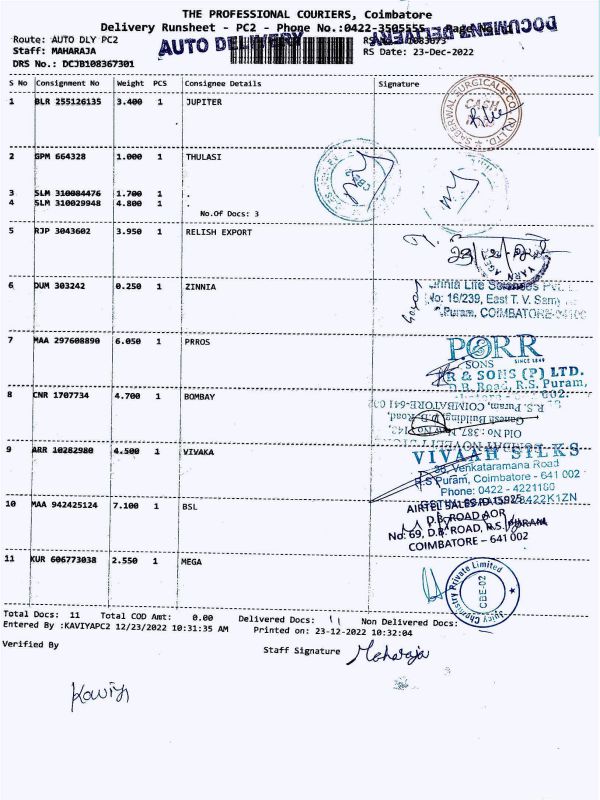 THE PROFESSIONAL COURIERS, Coimbatore
Delivery Runsheet - PC2 - Phone No.:0422-3505555
Route: AUTO DLY PC2
Staff: MAHARAJA
DRS No.: DCJB108367301
AUTO DELIVERY
DOCUMENT DELIVERY
RS Date: 23-Dec-2022
S No Consignment No Weight PCS Consignee Details Signature
1 BLR 255126135 3.400 1 JUPITER
SABERWAL SURGICALS CO. (R) LTD.
CASH
2 GPM 664328 1.000 1 THULASI
3 SLM 310084476 1.700 1 .
4 SLM 310029948 4.800 1 .
No.Of Docs: 3
5 RJP 3043602 3.950 1 RELISH EXPORT
YARN AGE
6 DUM 303242 0.250 1 ZINNIA
Life Sciences Pvt.
No: 16/239, East T. V. Samy
Puram, COIMBATORE
7 MAA 297608890 6.050 1 PRROS
PORR
SONS SINCE 1949
R & SONS (P) LTD.
D.B. Road, R.S. Puram,
8 CNR 1707734 4.700 1 BOMBAY
R.S. Puram, COIMBATORE-641
Ganesh Building, D.B. Road,
Old No: 387, New No
9 ARR 10282980 4.500 1 VIVAKA
VIVAAH SILKS
38, Venkataramana Road
R.S Puram, Coimbatore - 641 002
Phone: 0422 - 4221160
10 MAA 942425124 7.100 1 BSL
AIRTEL SALES
D.B. ROAD AOR
No: 69, D.B. ROAD, R.S. PURAM
COIMBATORE – 641 002
11 KUR 606773038 2.550 1 MEGA
Juicy Chemistry Private Limited
CBE-02
Total Docs: 11 Total COD Amt: 0.00 Delivered Docs: 11 Non Delivered Docs:
Entered By :KAVIYAPC2 12/23/2022 10:31:35 AM Printed on: 23-12-2022 10:32:04
Verified By Staff Signature Maharaja
Kaviya